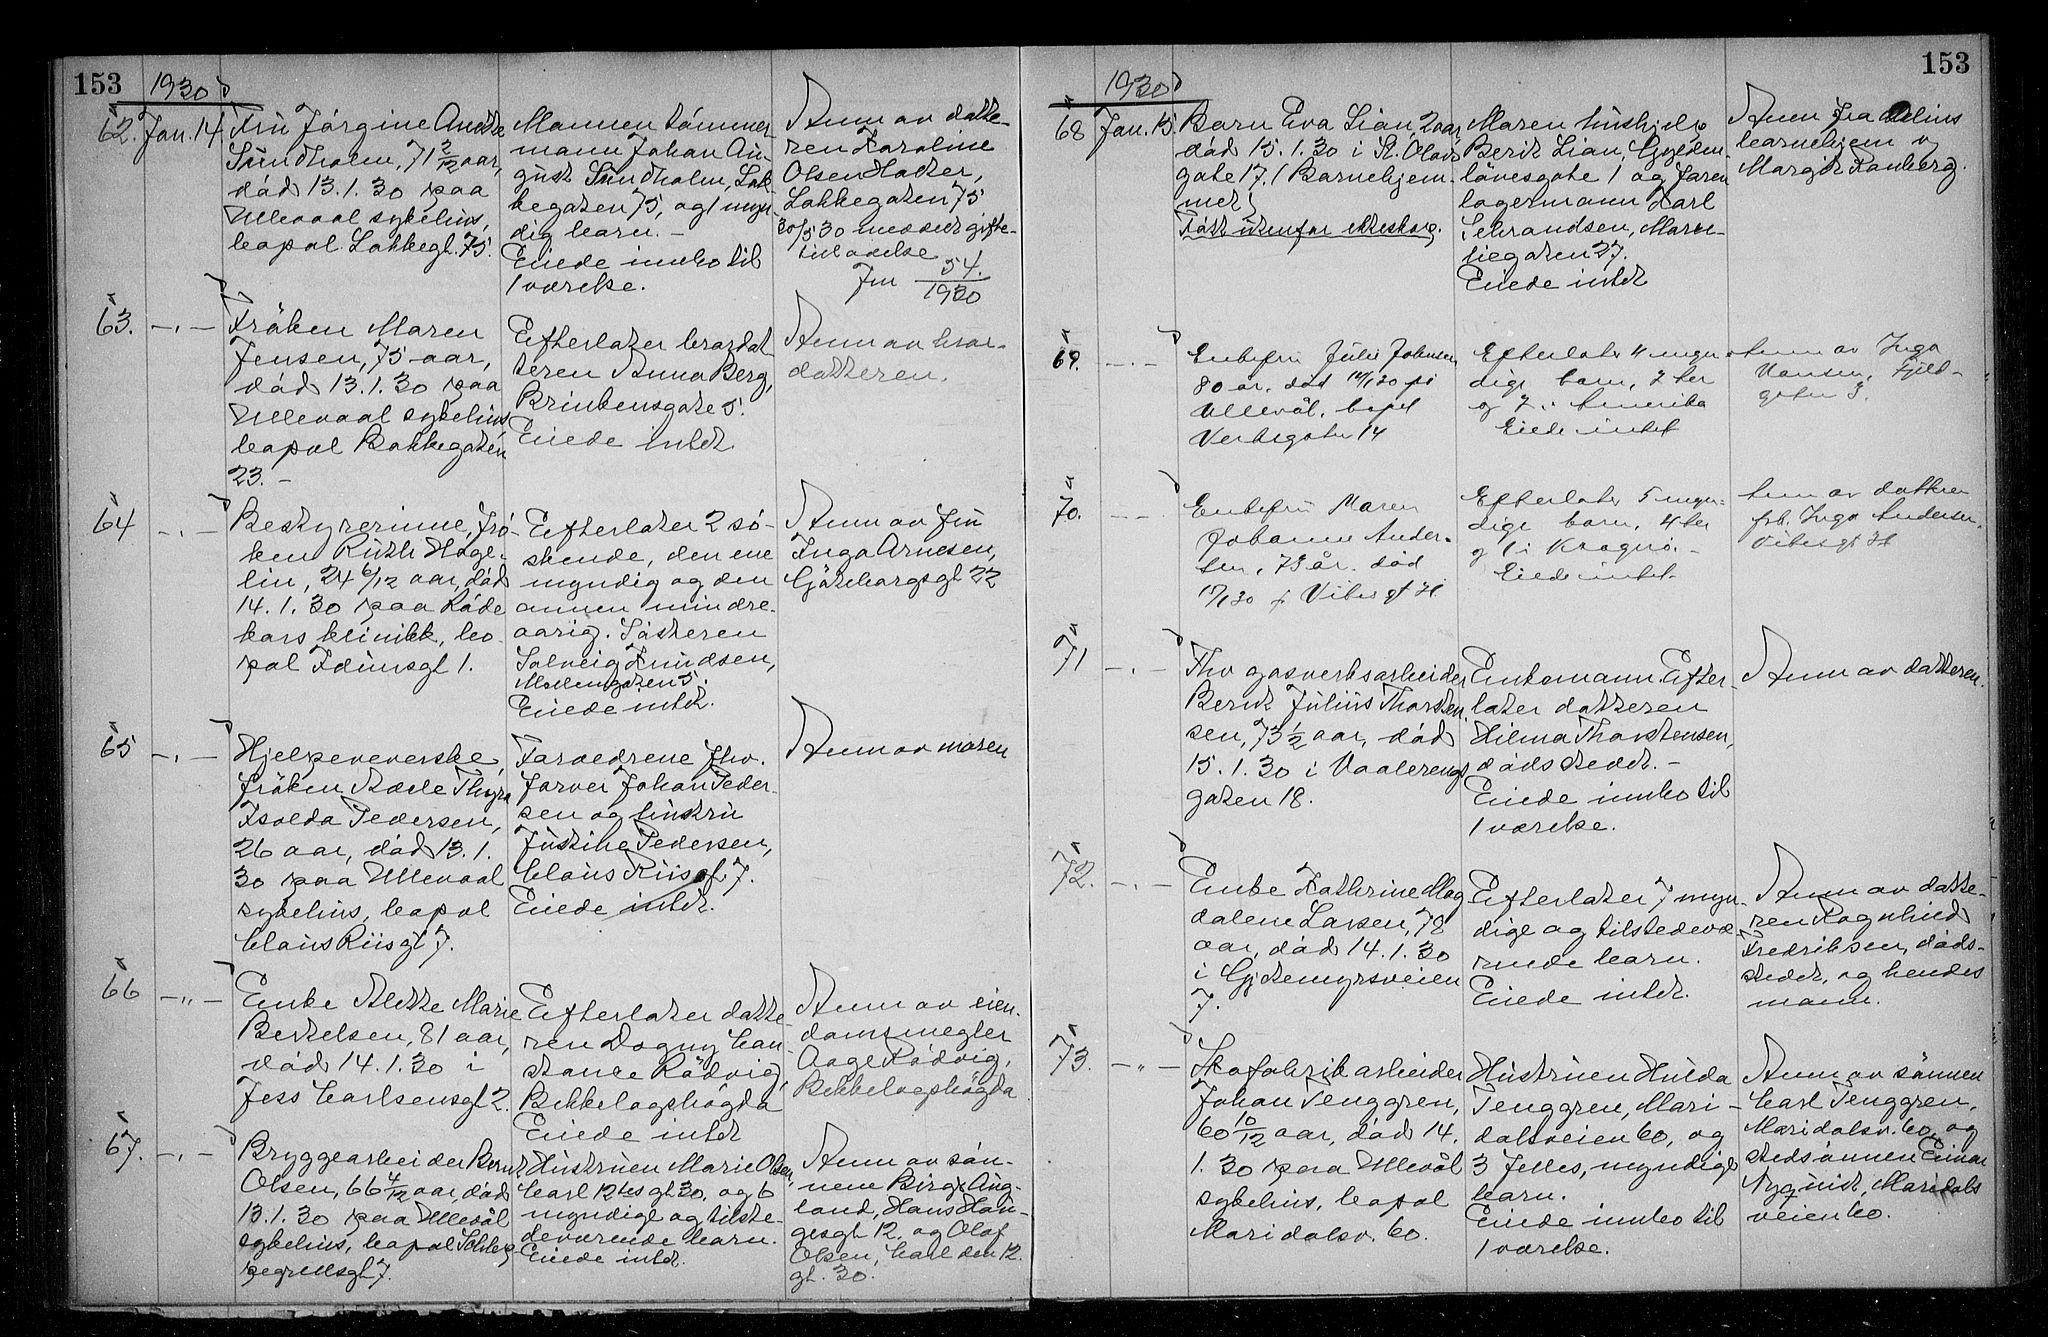 153
1930
62. Jan. 14.
Fru Jörgine Anette
Sundholm, 71 2/12 aar,
död 13.1.30 paa
Ullevaal sykehus,
bopæl Lakkegt. 75.
Mannen tömmer-
mann Johan Au-
gust Sundholm, Lak-
kegaten 75, og 1 myn-
dig barn. -
Eiede innbo til
1 værelse.
Anm av datte-
ren Karoline
Olsen
Lakkegaten 75
30/5 30 meddelt gifte-
tilladelse
Jnr 54/1930
63. -"-
Fröken Maren
Jensen, 75 aar,
död 13.1.30 paa
Ullevaal sykehus
bopæl Bakkegaten
23. -
Efterlater brordat
teren Anna Berg,
Brinkensgate 5.
Eiede intet
Anm av bror-
datteren.
64 -"-
Bestyrerinne, frö-
ken Ruth Hage-
lin, 24 6/12 aar, död
14.1.30 paa Röde
kors klinikk, bo-
pæl Idunsgt 1.
Efterlater 2 sö-
skende, den ene
myndig og den
annen mindre-
aarig. Sösteren
Solveig Knudsen,
Eiede intet.
Anm av fru
Inga Arnesen,
Göteborgsgt 22
65 -"-
Hjelpeveverske,
fröken Adele Thyra
Isolda Pedersen,
26 aar, död 13.1.
30 paa Ullevaal
sykehus, bopæl
Claus Riisgt 7.
Foreldrene fhv.
farver Johan Peder-
sen og hustru
Justine Pedersen,
Claus Riisgt 7.
Eiede intet.
Anm av moren
66 -"-
Enke Alette Marie
Bertelsen, 81 aar,
död 14.1.30 i
Jess Carlsensgt 2.
Efterlater datte-
ren Dagny Con-
stance Rödvig,
Bekkelagshögda
Eiede intet
Anm av eien-
domsmegler
Aage Rödvig,
Bekkelagshögda
67. -"-
Bryggearbeider Bernt
Olsen, 66 4/12 aar, död
13.1.30 paa Ullevål
sykehus, bopæl Schlep-
pegrellsgt 7.
Hustruen Marie Olsen,
Carl 12tes gt 30, og 6
myndige og tilste-
deværende barn.
Eiede intet.
Anm av sön-
nene Birger Aug-
land, Hans Hau-
gesgt 12, og Olaf
Olsen, Carl den 12.
gt. 30.
153
1930
68 Jan. 15.
Barn Eva Lian, 2 aar,
död 15.1.30 i St. Olavs
gate 17. (Barnehjem-
met)
Född utenfor ekteskap.
Moren hushjelp
Berit Lian, Gylden-
lövesgate 1 og faren
lagermann Karl
Sebrandsen, Mark-
veiegaten 27.
Eiede intet
Anm fra
barnehjem v
Margit Ramberg.
69. -"-
Enkefru Julie Johnsen,
80 år. död 14/1 30 på
Ullevål. bopel
Verksgaten 14
Efterlater 4 myn-
dige barn, 2 her
og 2 i Amerika
Eiede intet
Anm av Inga
Hansen, Fjeld-
gaten 3.
70. - -
Enkefru Maren
Johanne Ander-
sen, 73 år. död
Efterlater 5 myn-
dige barn, 4 her
og 1 i Kragerö. -
Eiede intet.
Anm av datteren
frk. Inga Andersen,
71 -"-
Fhv gasverksarbeider
Bernt Julius Thorsten-
sen, 73 1/2 aar, död
15.1.30 i Vaalerengs
gaten 18.
Enkemann. Efter-
later datteren
Hilma Thorstensen,
dödsstedet. -
Eiede innbo til
1 værelse.
Anm av datteren.
72. -"-
Enke Kathrine Mag
dalene Larsen, 78
aar, död 14.1.30
i Gjetemyrsveien
7.
Efterlater 7 myn-
dige og tilstedevæ-
rende barn.
Eiede intet.
Anm av datte-
ren Ragnhild
Fredriksen, döds-
stedet, og hendes
mann.
73. -"-
Skofabrikarbeider
Johan Tenggren,
60 10/12 aar, död 14.
1.30 paa Ullevål
sykehus, bopæl
Maridalsv. 60.
Hustruen Hulda
Tenggren, Mari-
dalsveien 60, og
3 felles, myndige
barn.
Eiede innbo til
1 værelse.
Anm av sönnen
Carl Tenggren,
Maridalsv. 60, og
stedsönnen Einar
Nyquist, Maridals
veien 60.